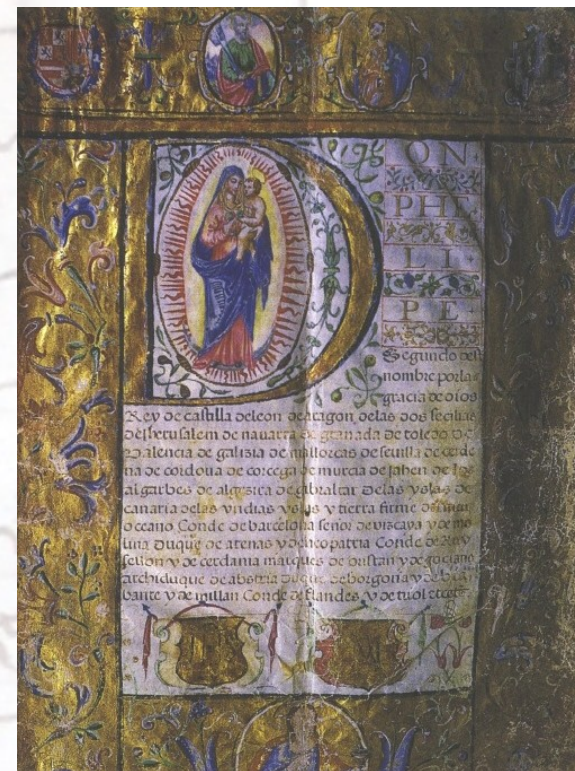 DON
PHE
LI
PE
Segundo deste
nombre por la
gracia de dios
Rey de castilla de leon de aragon de las dos secilias
de Jherusalem de navarra de granada de toledo de
Valencia de galizia de mallorcas de sevilla de cerde
na de cordova de corcega de murcia de jahen de los
algarbes de algezira de gibraltar de las yslas de
canaria de las yndias yslas y tierra firme del mar
oceano Conde de barcelona señor de vizcaya y de mo
lina Duque de atenas y de neopatria Conde de Ruy
sellon y de cerdania marques de oristan y de gociano
archiduque de abstria Duque de borgoña y de bra
bante y de millan Conde de flandes y de tirol etcet